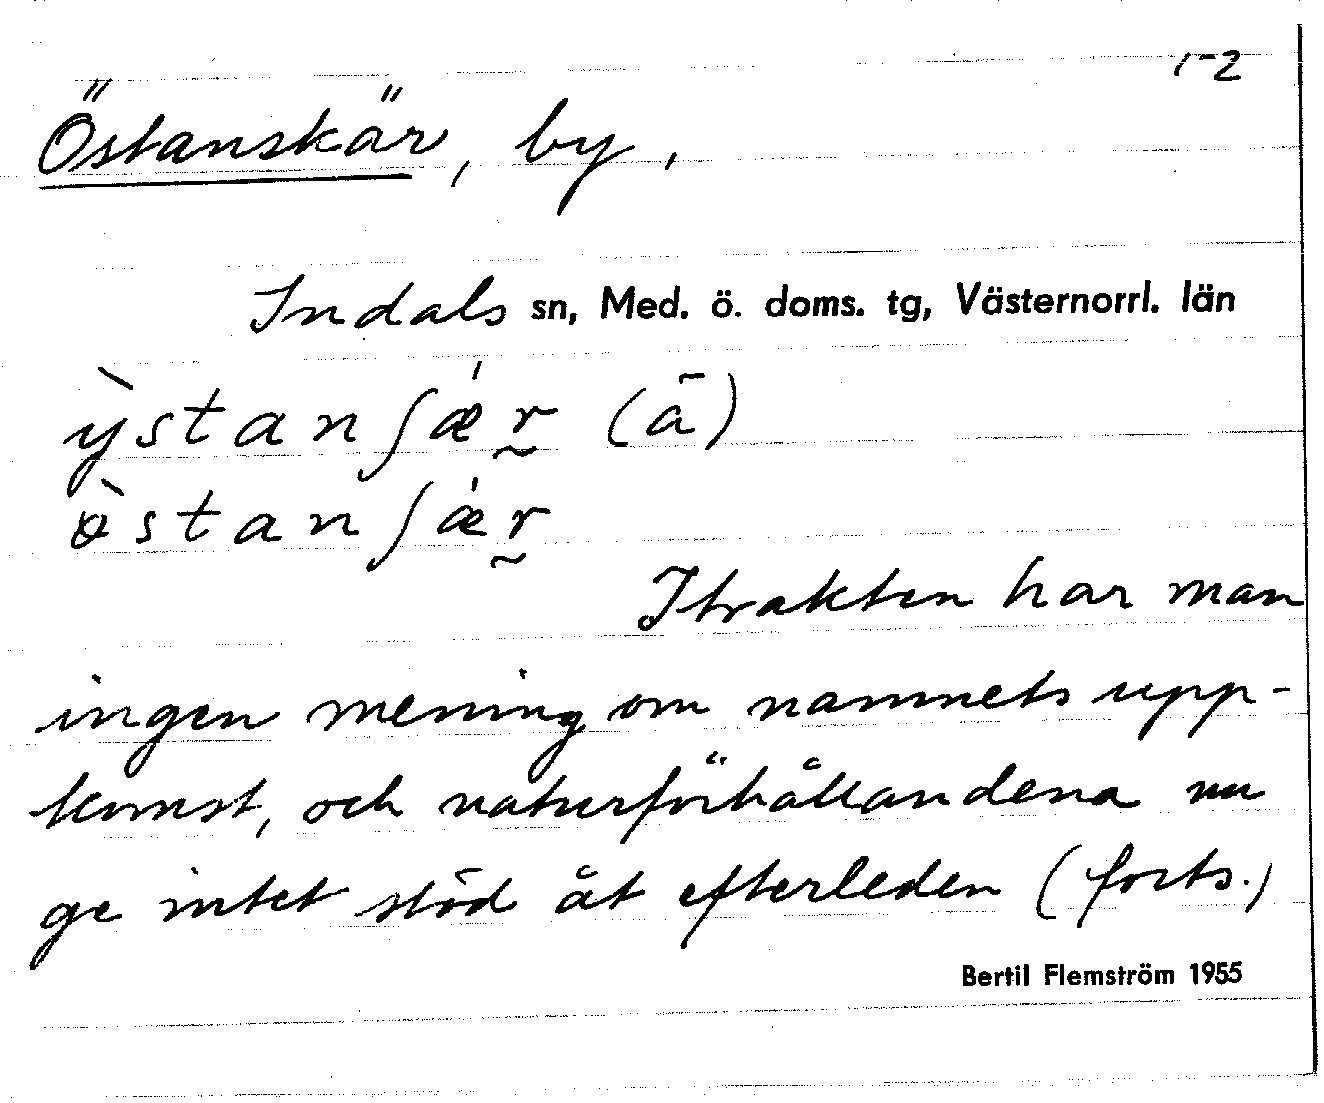 1-2
Östanskär, by,
Indals sn, Med. ö. doms. tg, Västernorrl. län
ỳstanʃǽr̰ (ā)
ö̀stanʃǽr̰
I trakten har man
ingen mening om namnets upp-
komst, och naturförhållandena nu
ge intet stöd åt efterleden (forts.)
Bertil Flemström 1955